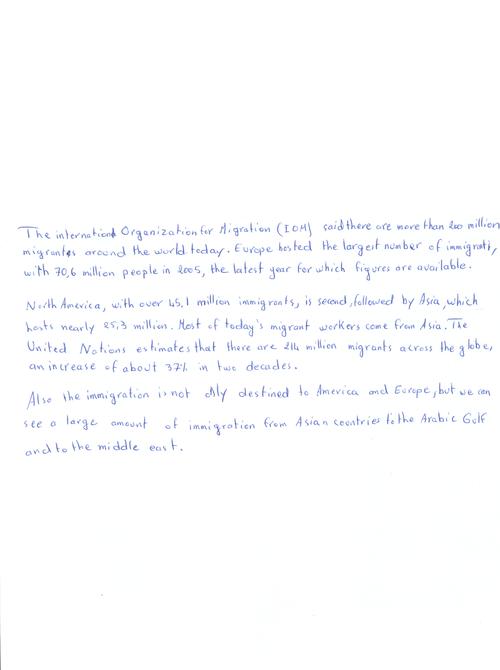 The international Organization for Migration (IOM) said there are more than 200 million
migrantes around the world today. Europe hosted the largest number of immigrants,
with 70,6 million people in 2005, the latest year for which figures are available.
North America, with over 45,1 million immigrants, is second, followed by Asia, which
hosts nearly 25,3 million. Most of today's migrant workers come from Asia. The
United Nations estimates that there are 214 million migrants across the globe,
an increase of about 37% in two decades.
Also the immigration is not only destined to America and Europe, but we can
see a large amount of immigration from Asian countries to the Arabic Gulf
and to the middle east.